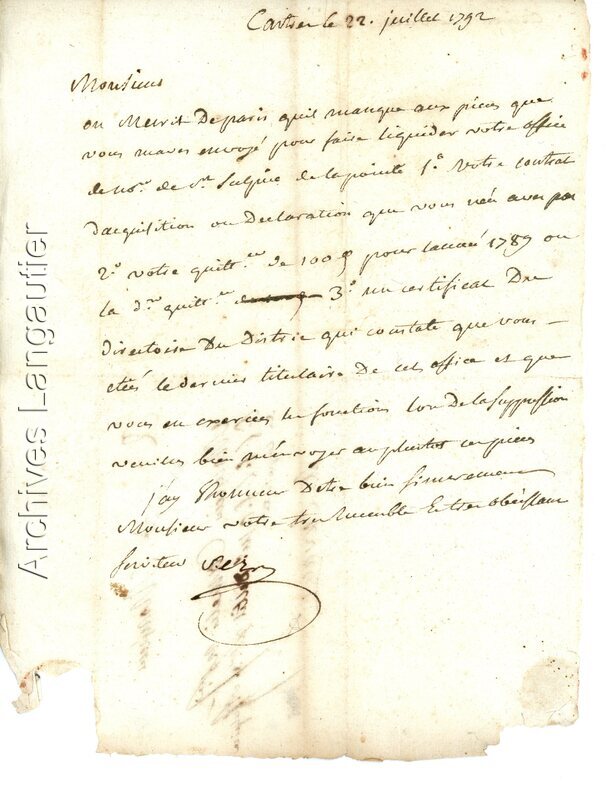 Castres le 22. juillet 1792
Monsieur
on m'ecrit De paris qu'il manque aux pieces que
vous maves envoyé pour faire liquider votre office
de no.re de S.t Sulpice de la pointe 1.° Votre contrat
d'acquisition ou Declaration que vous n'en aves pas
2.° votre quit.ce de 100 pour lannée 1789 ou
la d.re quit.ce 3.° un certificat Du
directoire Du District qui constate que vous
etés le dernier titulaire De cet office et que
vous en exercies les fonctions lors De la Suppression
veuilles bien m'envoyer au plustot ces pieces
j'ay l'honneur D'etre bien sincerement
Monsieur votre tres humble Et tres obéissant
serviteur
Archives Langautier